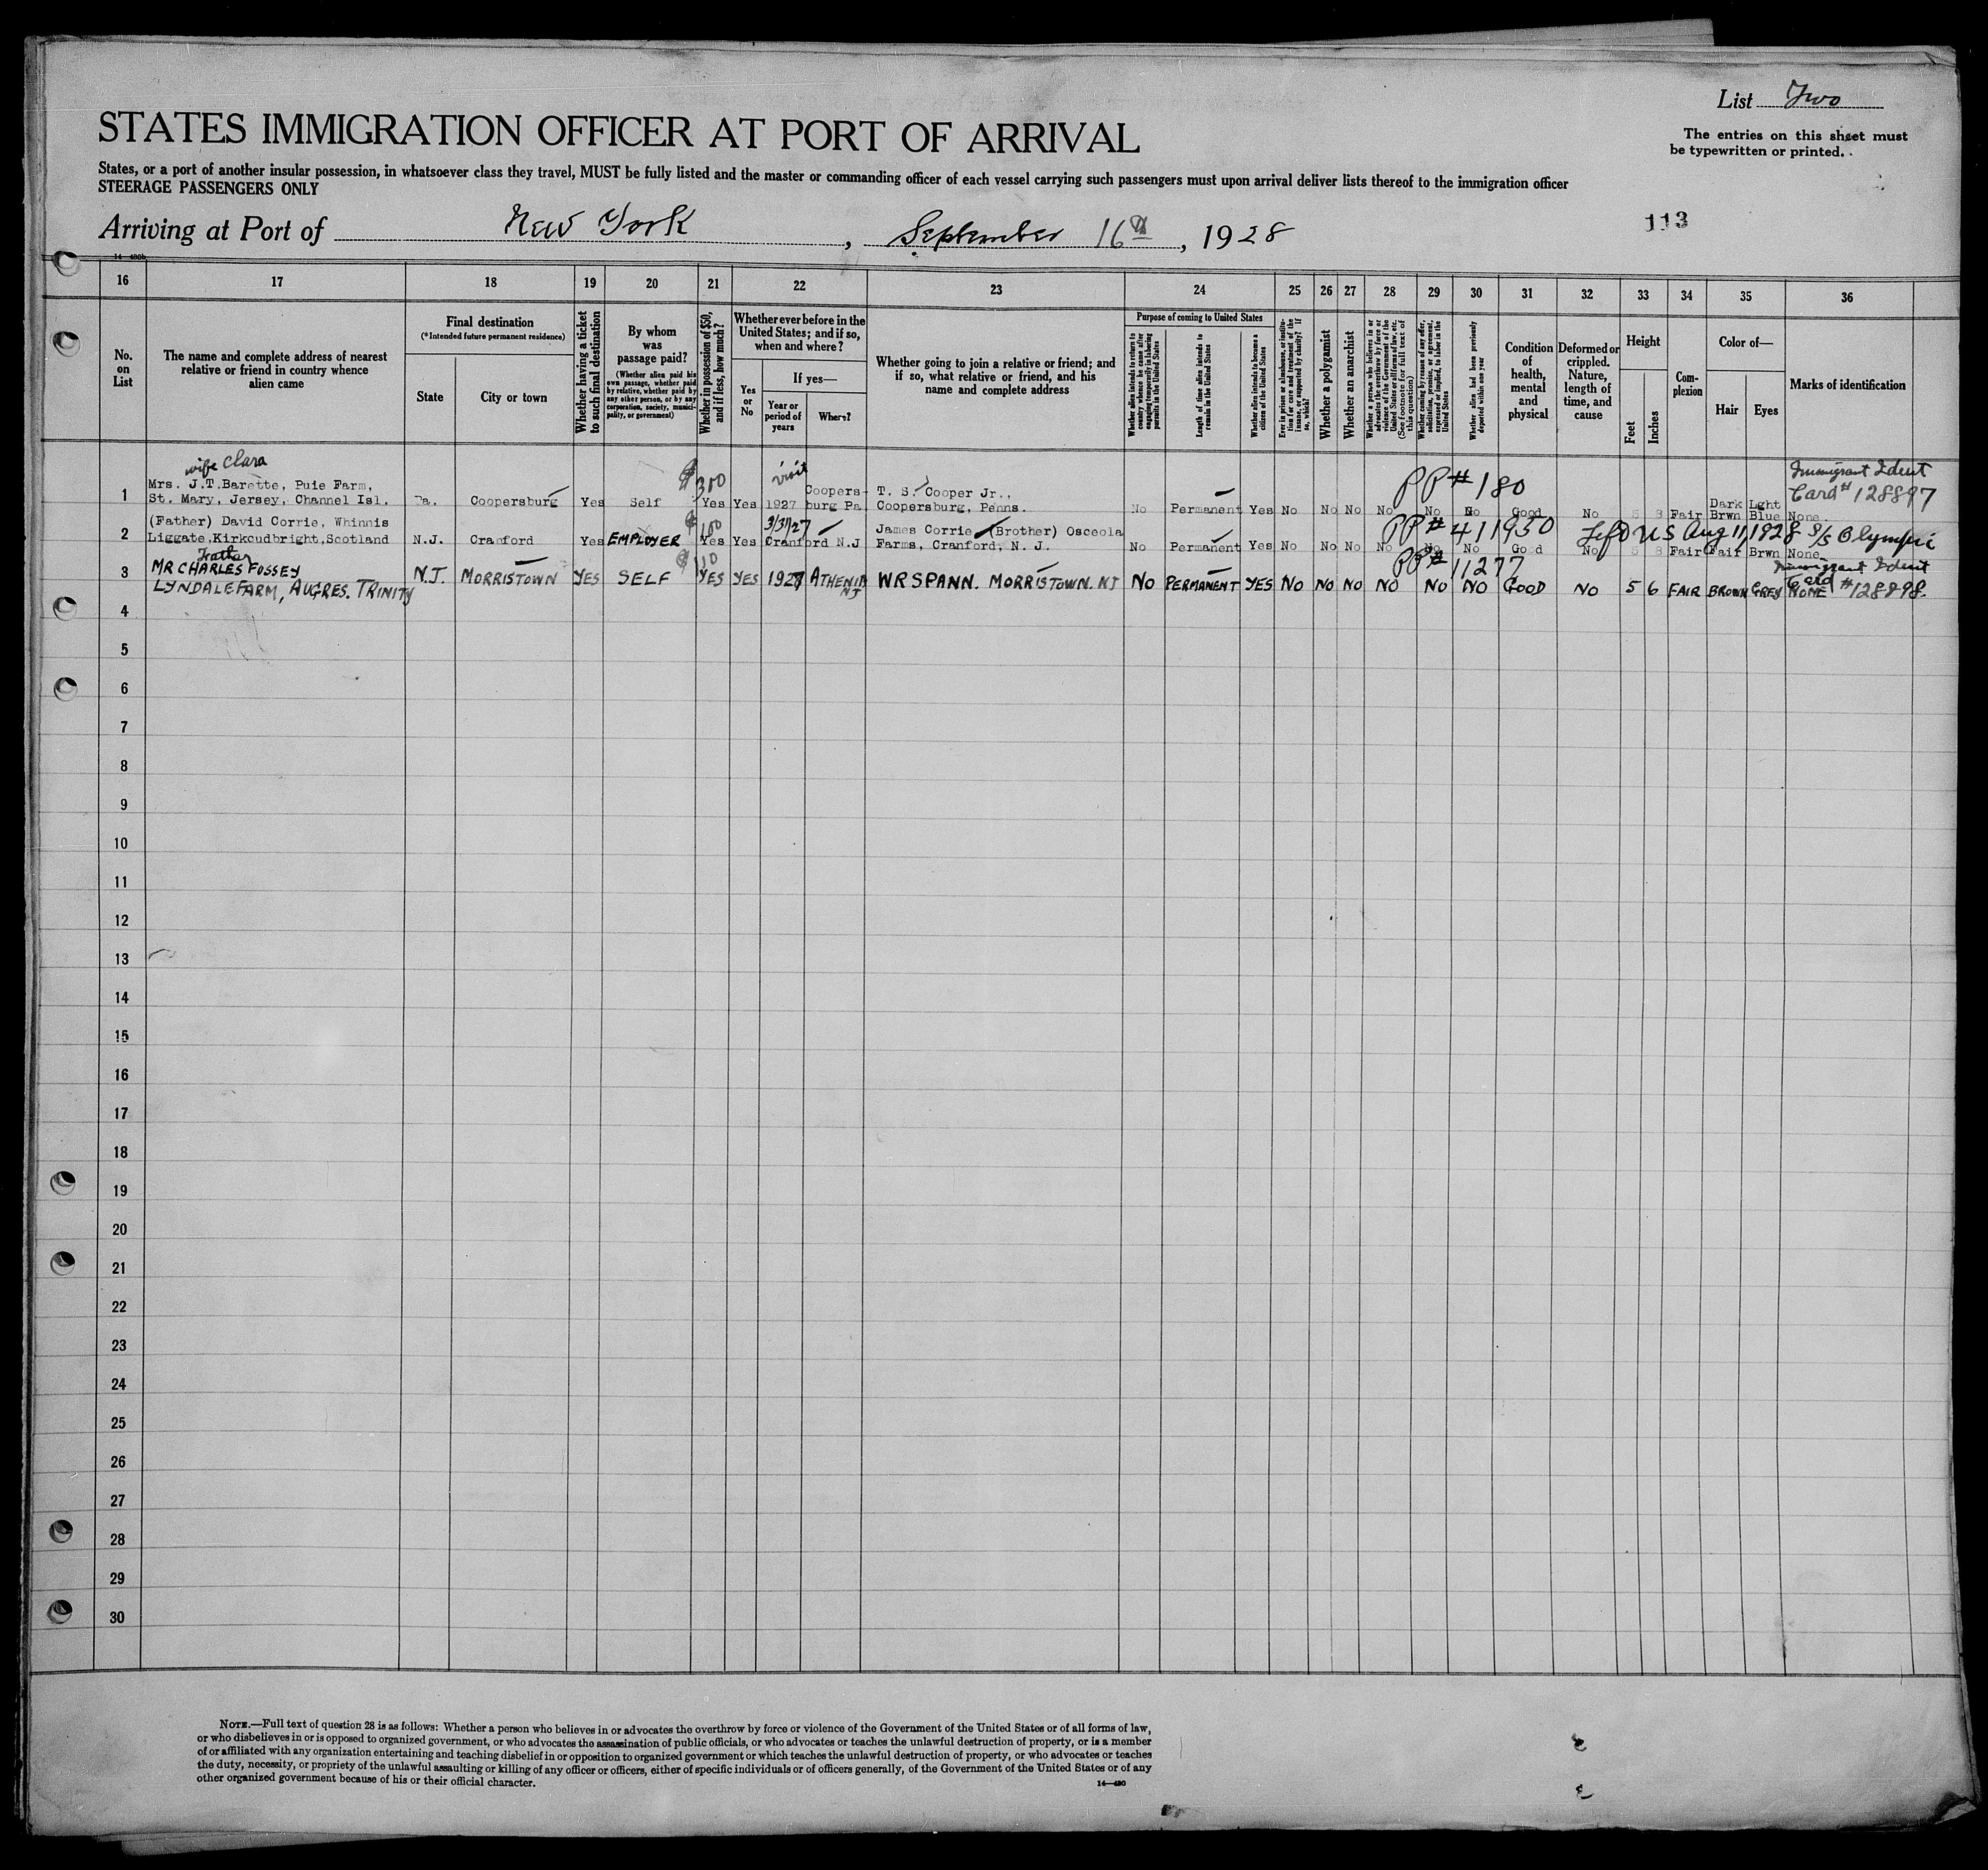 List Two
STATES IMMIGRATION OFFICER AT PORT OF ARRIVAL
The entries on this sheet must
be typewritten or printed.
States, or a port of another insular possession, in whatsoever class they travel, MUST be fully listed and the master or commanding officer of each vessel carrying such passengers must upon arrival deliver lists thereof to the immigration officer
STEERAGE PASSENGERS ONLY
Arriving at Port of New York, September 16th, 1928
113
14—480b
16 17 18 19 20 21 22 23 24 25 26 27 28 29 30 31 32 33 34 35 36
No. on List
The name and complete address of nearest relative or friend in country whence alien came
Final destination
(*Intended future permanent residence)
State
City or town
Whether having a ticket to such final destination
By whom was passage paid?
(Whether alien paid his own passage, whether paid by relative, whether paid by any other person, or by any corporation, society, municipality, or government)
Whether in possession of $50, and if less, how much?
Whether ever before in the United States; and if so, when and where?
Yes or No
If yes—
Year or period of years
Where?
Whether going to join a relative or friend; and if so, what relative or friend, and his name and complete address
Purpose of coming to United States
Whether alien intends to return to country whence he came after engaging temporarily in laboring pursuits in the United States
Length of time alien intends to remain in the United States
Whether alien intends to become a citizen of the United States
Ever in prison or almshouse, or institution for care and treatment of the insane, or supported by charity? If so, which?
Whether a polygamist
Whether an anarchist
Whether a person who believes in or advocates the overthrow by force or violence of the Government of the United States or all forms of law, etc. (See footnote for full text of this question)
Whether coming by reason of any offer, solicitation, promise, or agreement, expressed or implied, to labor in the United States
Whether alien had been previously deported within one year
Condition of health, mental and physical
Deformed or crippled. Nature, length of time, and cause
Height
Feet
Inches
Complexion
Color of—
Hair
Eyes
Marks of identification
wife Clara
$300 visit PP # 180 Immigrant Ident
Card # 128897
1 Mrs. J.T.Barette, Puie Farm, Coopers- T. S. Cooper Jr., Dark Lght
St. Mary, Jersey, Channel Isl. Pa. Coopersburg Yes Self Yes Yes 1927 burg Pa. Coopersburg, Penns. No Permanent Yes No No No No No No Good No 5 8 Fair Brwn Blue None
$100 3/31/27 PP # 411950 Left US Aug 11, 1928 S/S Olympic
2 (Father) David Corrie, Whinnis James Corrie (Brother) Osceola
Liggate,Kirkcudbright,Scotland N.J. Cranford Yes EMPLOYER Yes Yes Cranford N.J Farms, Cranford, N. J. No Permanent Yes No No No No No No Good No 5 8 Fair Fair Brwn None
Father $110 PP # 11277 Immigrant Ident
Card # 128898
3 MR CHARLES FOSSEY
LYNDALE FARM, AUGRES. TRINITY N.J. MORRISTOWN YES SELF YES YES 1927 ATHENIA NJ WR SPANN. MORRISTOWN. NJ NO PERMANENT YES NO NO NO NO NO NO GOOD NO 5 6 FAIR BROWN GREY NONE
4
5
6
7
8
9
10
11
12
13
14
15
16
17
18
19
20
21
22
23
24
25
26
27
28
29
30
NOTE.—Full text of question 28 is as follows: Whether a person who believes in or advocates the overthrow by force or violence of the Government of the United States or of all forms of law,
or who disbelieves in or is opposed to organized government, or who advocates the assassination of public officials, or who advocates or teaches the unlawful destruction of property, or is a member
of or affiliated with any organization entertaining and teaching disbelief in or opposition to organized government or which teaches the unlawful destruction of property, or who advocates or teaches
the duty, necessity, or propriety of the unlawful assaulting or killing of any officer or officers, either of specific individuals or of officers generally, of the Government of the United States or of any
other organized government because of his or their official character.
14—480